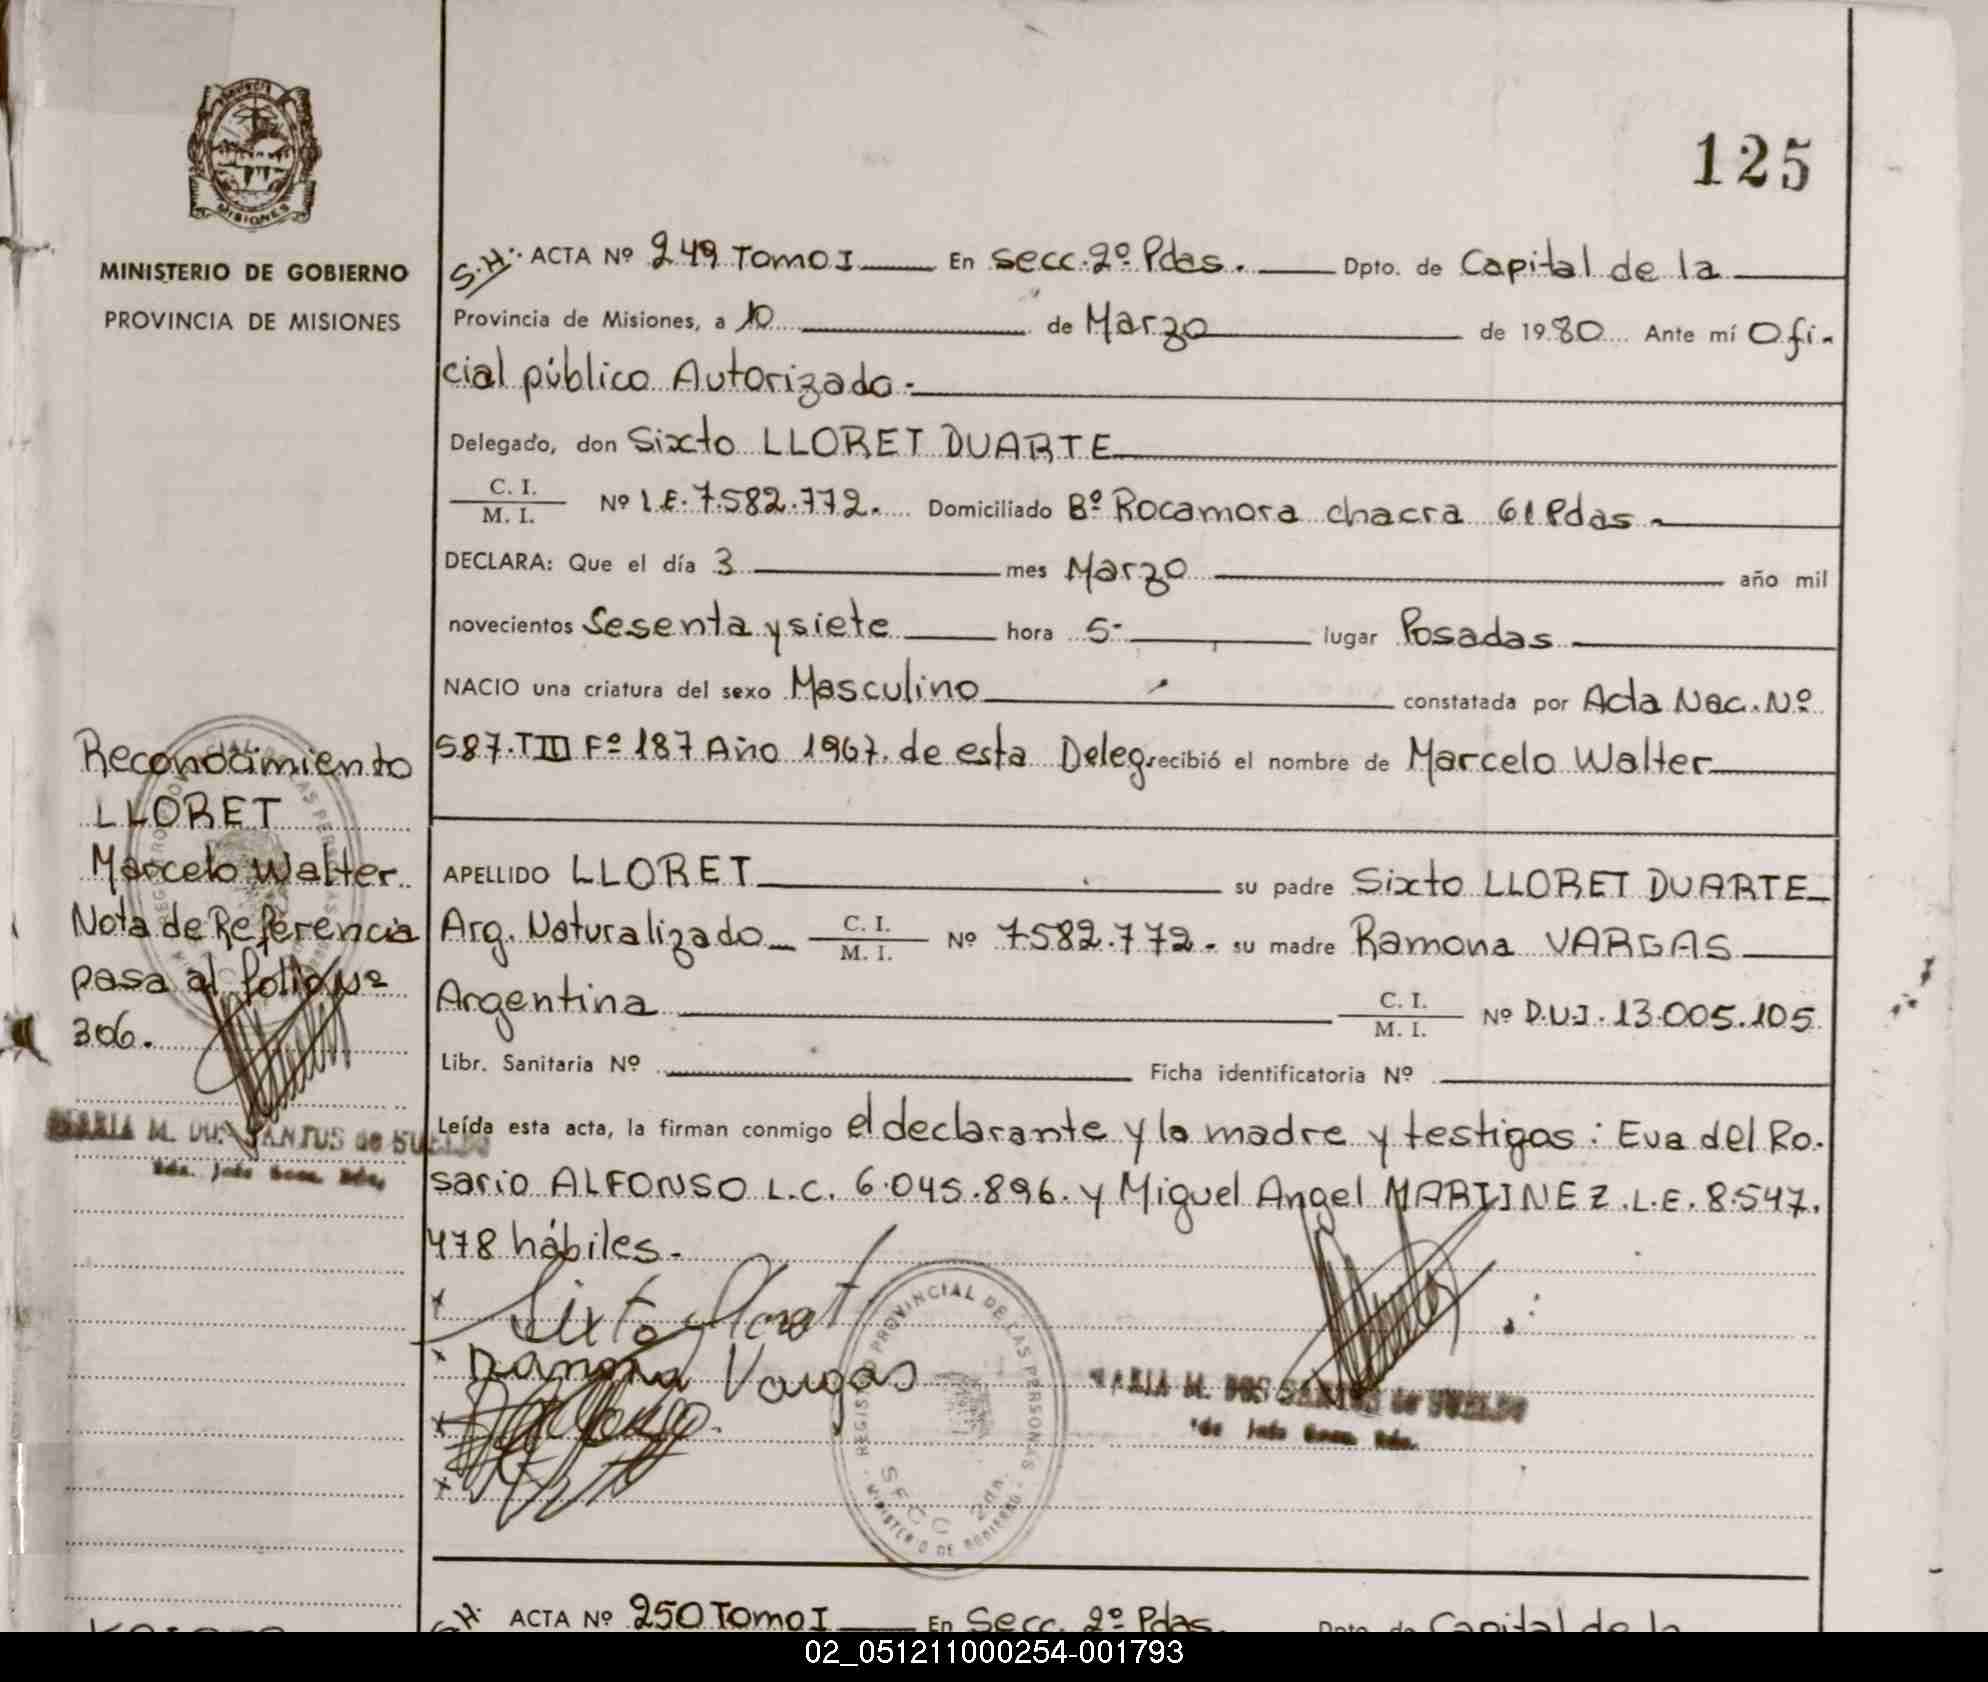 125
MISIONES
MINISTERIO DE GOBIERNO
PROVINCIA DE MISIONES
S.H. ACTA Nº 249 Tomo I En Secc. 2º Pdas. Dpto. de Capital de la
Provincia de Misiones, a 10 de Marzo de 1980 Ante mí Ofi-
cial público Autorizado.-
Delegado, don Sixto LLORET DUARTE
C. I.
M. I. Nº L.E. 7.582.772. Domiciliado Bº Rocamora chacra 61 Pdas.-
DECLARA: Que el día 3 mes Marzo año mil
novecientos Sesenta y siete hora 5- lugar Posadas
NACIO una criatura del sexo Masculino constatada por Acta Nac. Nº
587. T III Fº 187 Año 1967. de esta Deleg. recibió el nombre de Marcelo Walter
APELLIDO LLORET su padre Sixto LLORET DUARTE
Arg. Naturalizado C. I.
M. I. Nº 7.582.772.- su madre Ramona VARGAS
Argentina C. I.
M. I. Nº D.U.I. 13.005.105
Libr. Sanitaria Nº Ficha identificatoria Nº
Leída esta acta, la firman conmigo el declarante y la madre y testigos: Eva del Ro-
sario ALFONSO L.C. 6.045.896. y Miguel Angel MARTINEZ. L.E. 8.547.
478 hábiles.-
x Sixto Lloret
x Ramona Vargas
x
x
REGISTRO PROVINCIAL DE LAS PERSONAS
SECC 2da.
MINISTERIO DE GOBIERNO
MARIA M. DOS SANTOS de SUELDO
Reconocimiento
LLORET
Marcelo Walter.
Nota de Referencia
pasa al folio Nº
306.
MARIA M. DOS SANTOS de SUELDO
ACTA Nº 250 Tomo I En Secc. 2º Pdas. Dpto. de Capital de la
02_051211000254-001793